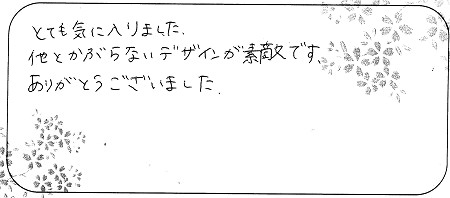 とても気に入りました.
他とかぶらないデザインが素敵です.
ありがとうございました.